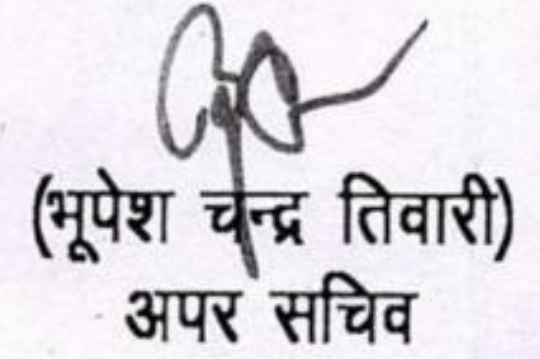 (भूपेश चन्द्र तिवारी)
अपर सचिव